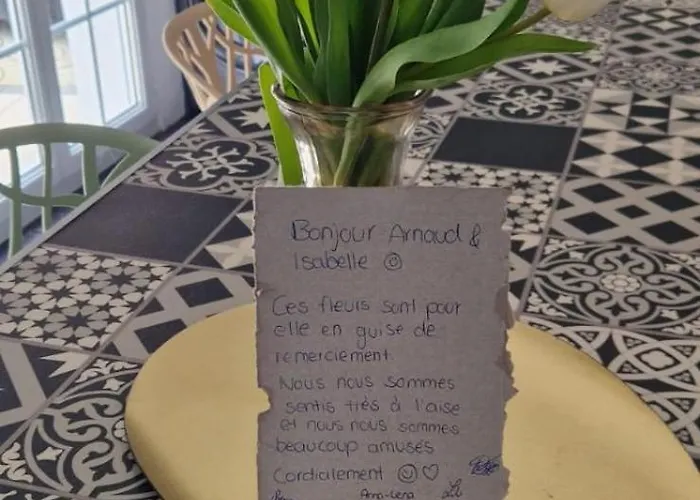 Bonjour Arnaud &
Isabelle ☺
Ces fleurs sont pour
elle en guise de
remerciement.
Nous nous sommes
sentis très à l'aise
et nous nous sommes
beaucoup amusés
Cordialement ☺♡
Anna-Lena